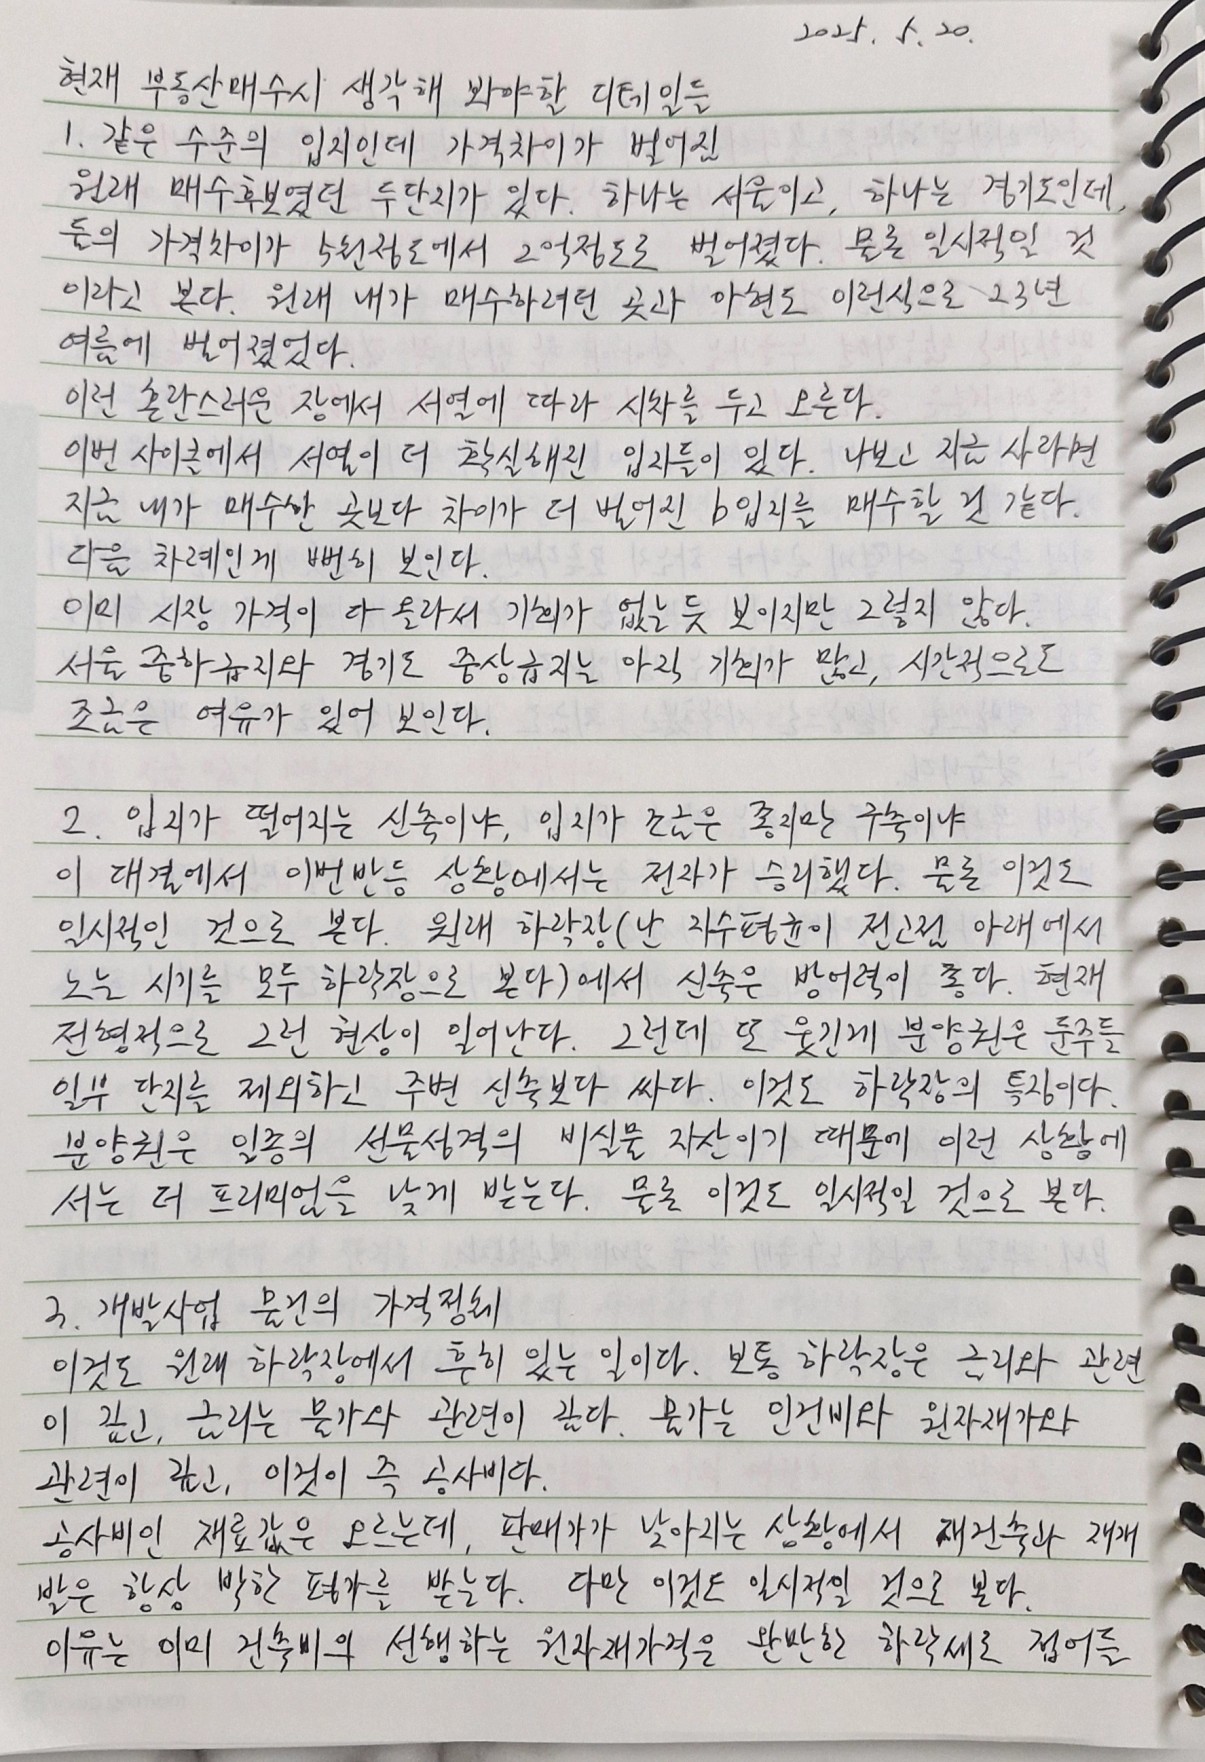 2025. 5. 20.
현재 부동산매수시 생각해 봐야할 디테일들
1. 같은 수준의 입지인데 가격차이가 벌어짐
원래 매수후보였던 두단지가 있다. 하나는 서울이고, 하나는 경기도인데,
둘의 가격차이가 5천정도에서 2억정도로 벌어졌다. 물론 일시적일 것
이라고 본다. 원래 내가 매수하려던 곳과 아현도 이런식으로 23년
여름에 벌어졌었다.
이런 혼란스러운 장에서 서열에 따라 시차를 두고 오른다.
이번 사이클에서 서열이 더 확실해진 입지들이 있다. 나보고 지금 사라면
지금 내가 매수한 곳보다 차이가 더 벌어진 b입지를 매수할 것 같다.
다음 차례인게 뻔히 보인다.
이미 시장 가격이 다 올라서 기회가 없는듯 보이지만 그렇지 않다.
서울 중하급지와 경기도 중상급지는 아직 기회가 많고, 시간적으로도
조금은 여유가 있어 보인다.
2. 입지가 떨어지는 신축이냐, 입지가 조금은 좋지만 구축이냐
이 대결에서 이번반등 상황에서는 전자가 승리했다. 물론 이것도
일시적인 것으로 본다. 원래 하락장(난 지수평균이 전고점 아래에서
노는 시기를 모두 하락장으로 본다)에서 신축은 방어력이 좋다. 현재
전형적으로 그런 현상이 일어난다. 그런데 또 웃긴게 분양권은 둔주들
일부 단지를 제외하곤 주변 신축보다 싸다. 이것도 하락장의 특징이다.
분양권은 일종의 선물성격의 비실물 자산이기 때문에 이런 상황에
서는 더 프리미엄을 낮게 받는다. 물론 이것도 일시적일 것으로 본다.
3. 개발사업 물건의 가격정체
이것도 원래 하락장에서 흔히 있는 일이다. 보통 하락장은 금리와 관련
이 깊고, 금리는 물가와 관련이 깊다. 물가는 인건비와 원자재가와
관련이 깊고, 이것이 즉 공사비다.
공사비인 재료값은 오르는데, 판매가가 낮아지는 상황에서 재건축과 재개
발은 항상 박한 평가를 받는다. 다만 이것도 일시적일 것으로 본다.
이유는 이미 건축비의 선행하는 원자재가격은 완만한 하락세로 접어들